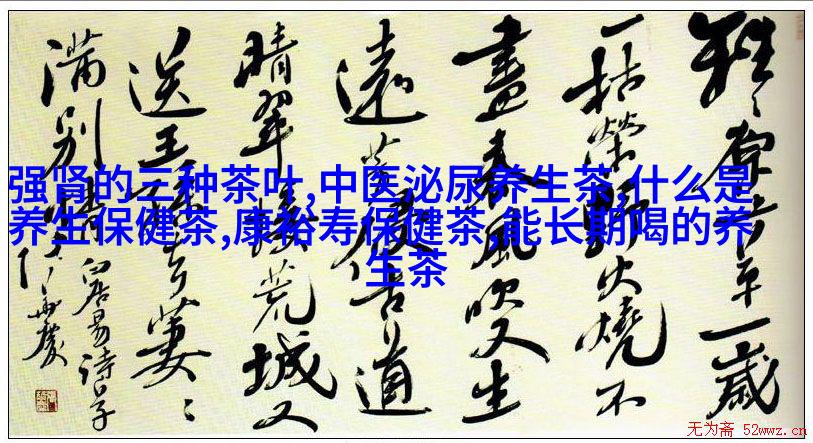 强肾的三种茶叶,中医泌尿养生茶,什么是
养生保健茶,康裕寿保健茶,能长期喝的养
生茶
離〻原上草一歲
一枯榮野火燒不
盡春風吹又生
遠芳侵古道
晴翠接荒城又
送王孫去萋〻
满别情
白居易诗
无为斋 52wwz.cn